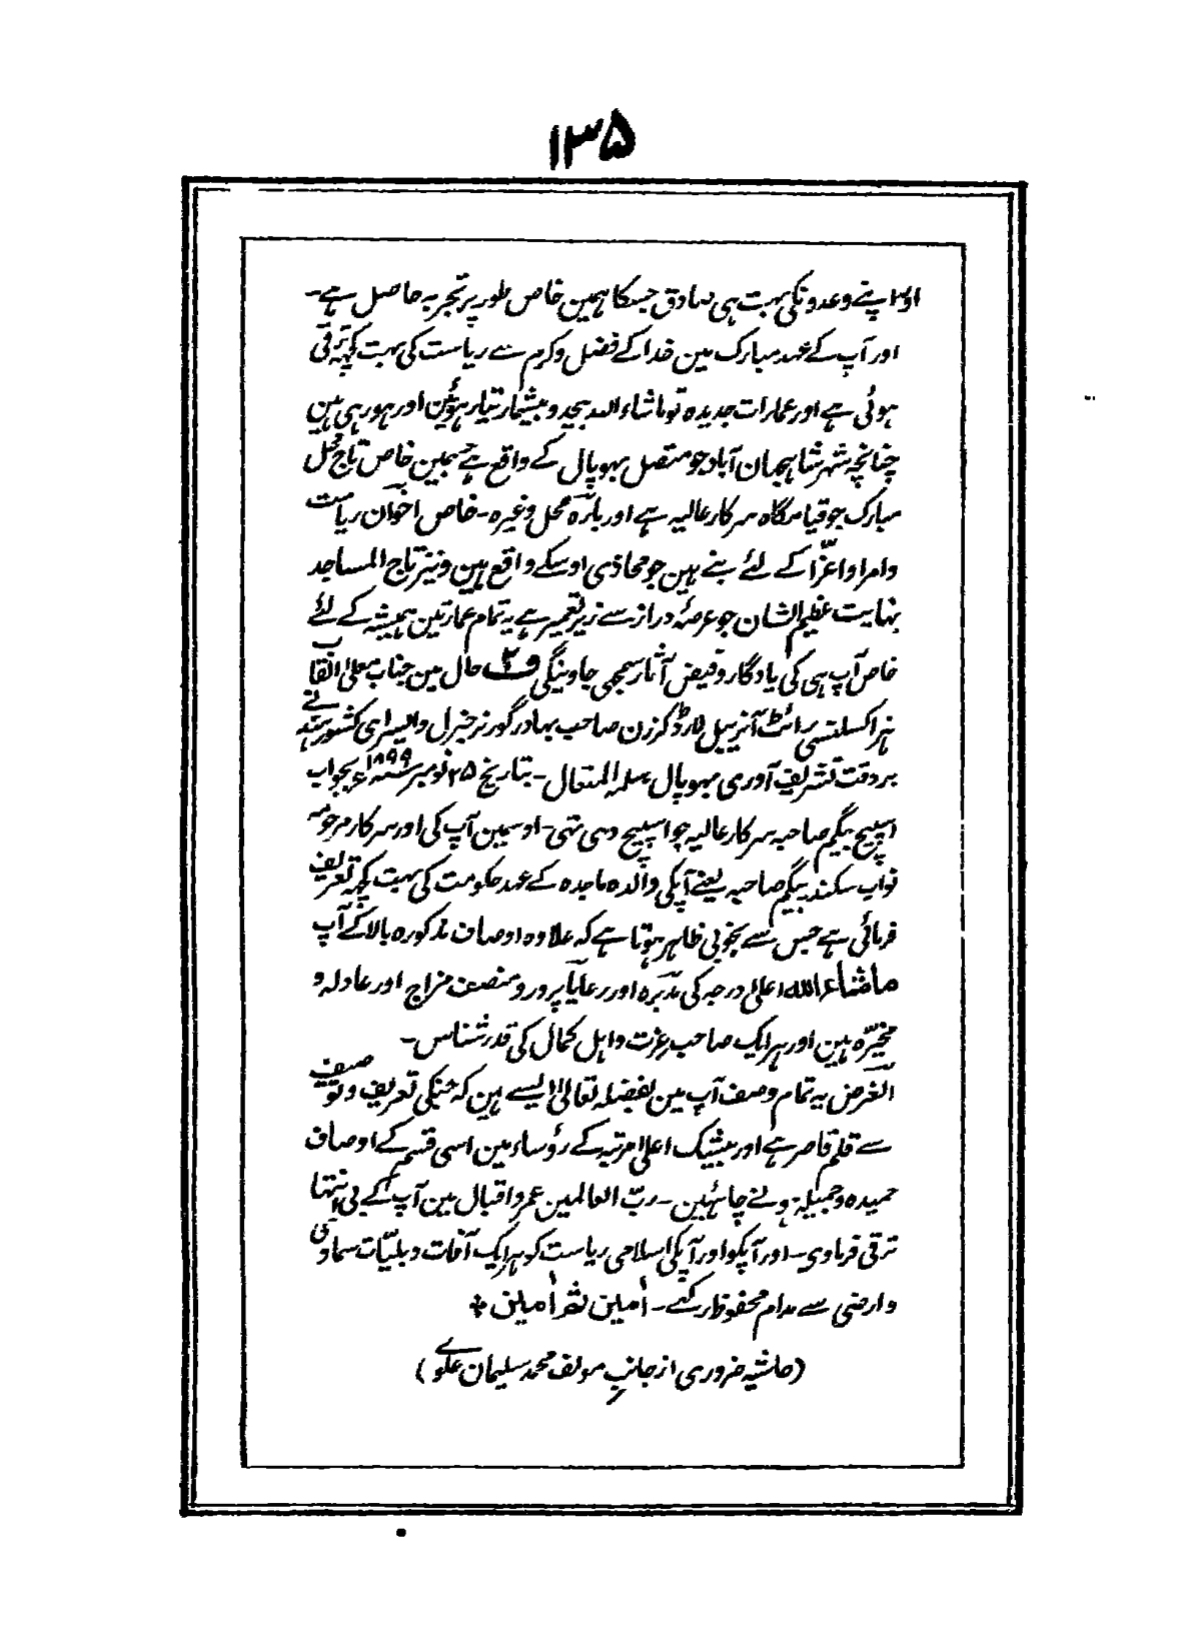 ۱۳۵
اور اپنے وعدونکی بہت ہی صادق جسکا ہمین خاص طور پر تجربہ حاصل ہے۔
اور آپ کے عہد مبارک مین خدا کے فضل و کرم سے ریاست کی بہت کچھ ترقی
ہوئی ہے اور عمارات جدیدہ تو ماشاء اللہ بیحد و بیشمار تیار ہوئین اور ہو رہی ہین
چنانچہ شہر شاہجہان آباد جو متصل بہوپال کے واقع ہے جسمین خاص تاج محل
مبارک جو قیامگاہ سرکار عالیہ ہے اور بارہ محل وغیرہ۔ خاص اخوان ریاست
وامرا و اعزّا کے لئے بنے ہین جو محاذی اوسکے واقع ہین و نیز تاج المساجد
نہایت عظیم الشان جو عرصۂ دراز سے زیر تعمیر ہے یہ تمام عمارتین ہمیشہ کے لئے
خاص آپ ہی کی یادگار و فیض آثار سمجھی جاوینگی حال مین جناب معلیٰ القاب
ہز اکسلنسی رائٹ آنریبل لارڈ کرزن صاحب بہادر گورنر جنرل و ایسرای کشور ہند نے
بر وقت تشریف آوری بہوپال سلمہ المتعال۔ بتاریخ ۲۵ نومبر ۱۸۹۹ء بجواب
اسپیچ بیگم صاحبہ سرکار عالیہ جو اسپیچ دی تہی۔ اوسمین آپ کی اور سرکار مرحومہ
نواب سکندر بیگم صاحبہ یعنے آپکی والدہ ماجدہ کے عہد حکومت کی بہت کچھ تعریف
فرمائی ہے جس سے بخوبی ظاہر ہوتا ہے کہ علاوہ اوصاف مذکورہ بالا کے آپ
ماشاء اللہ اعلیٰ درجہ کی مدبّرہ اور رعایا پرور و منصف مزاج اور عادلہ و
مخیّرہ ہین اور ہر ایک صاحب عزت و اہل کمال کی قدر شناس۔
الغرض یہ تمام وصف آپ مین بفضلہ تعالیٰ ایسے ہین کہ جنکی تعریف و توصیف
سے قلم قاصر ہے اور بیشک اعلیٰ مرتبہ کے رؤساء مین اسی قسم کے اوصاف
حمیدہ و جمیلہ ہونے چاہئین۔ ربّ العالمین عمر و اقبال مین آپ کے بی انتہا
ترقی فرماوی۔ اور آپکو اور آپکی اسلامی ریاست کو ہر ایک آفات و بلیّات سماوی
و ارضی سے مدام محفوظ رکہے۔ اٰمین ثم اٰمین *
(حاشیہ ضروری از جانب مولف محمد سلیمان علوی)